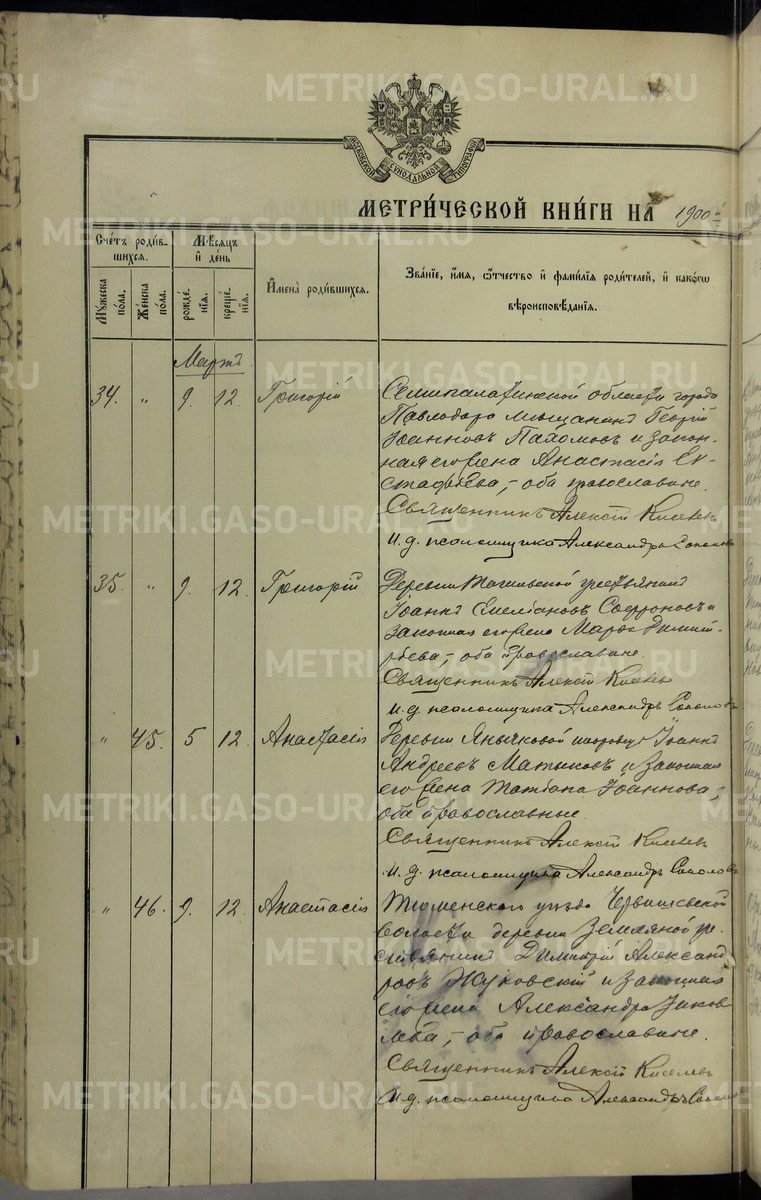 METRIKI.GASO-URAL.RU
МОСКОВСКОЙ СѴНОДАЛЬНОЙ ТИПОГРАФІИ
МЕТРИ́ЧЕСКОЙ КНИ́ГИ НА 1900
Сче́тъ роди́в-
шихся.
Мѣ́сяцъ
и҆ де́нь
И҆мена̀ роди́вшихся.
Зва́нїе, и҆́мя, ѻ҆́тчество и҆ фами́лїя роди́телей, и҆ како́гѡ
вѣроисповѣ́данїя.
Мꙋ́жеска по́ла.
Же́нска по́ла.
рожде́нїя.
креще́нїя.
Мартъ
34. " 9. 12. Григорій
Семипалатинской области города
Павлодара мѣщанинъ Георгій
Іоанновъ Пахомовъ и закон-
ная его жена Анастасія Ев-
стафіева, – оба православные.
Священникъ Алексій Киселевъ
и.д. псаломщика Александръ Соколовъ
35. " 9. 12. Григорій
Деревни крестьянинъ
Іоаннъ Емеліановъ Софроновъ и
законная его жена Марѳа Димит-
ріева, – оба православные.
Священникъ Алексій Киселевъ
и.д. псаломщика Александръ Соколовъ
" 45. 5 12. Анастасія
Деревни Янычковой Іоаннъ
Андреевъ и законная
его жена Татіана Іоаннова, –
оба православные.
Священникъ Алексій Киселевъ
и.д. псаломщика Александръ Соколовъ
" 46. 9. 12. Анастасія
Тюменскаго уѣзда Червишевской
волости деревни Земляной кре-
стьянинъ Димитрій Александ-
ровъ Жуковскій и законная
его жена Александра Яков-
лева, – оба православные.
Священникъ Алексій Киселевъ
и.д. псаломщика Александръ Соколовъ